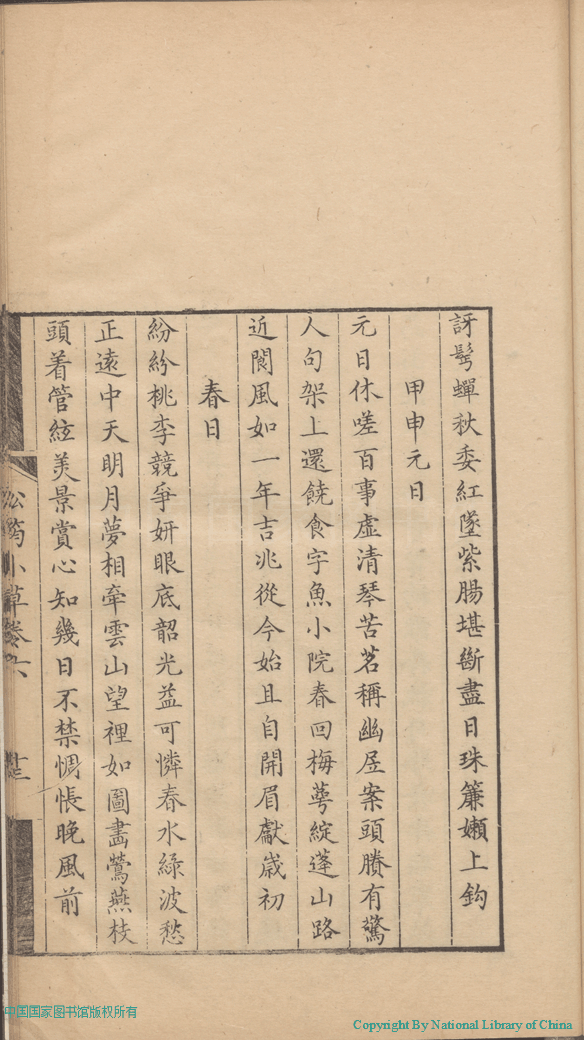 訝鬂蟬秋委紅墜紫腸堪斷盡日珠簾嬾上鈎
甲申元日
元日休嗟百事虛清琴苦茗稱幽居案頭賸有驚
人句架上還饒食字魚小院春回梅萼綻蓬山路
近閬風如一年吉兆從今始且自開眉獻歲初
春日
紛紛桃李競爭妍眼底韶光益可憐春水綠波愁
正遠中天明月夢相牽雲山望裡如圖畵鶯燕枝
頭着管絃羙景賞心知幾日不禁惆悵晚風前
小草卷六
中国国家图书馆版权所有
Copyright By National Library of China